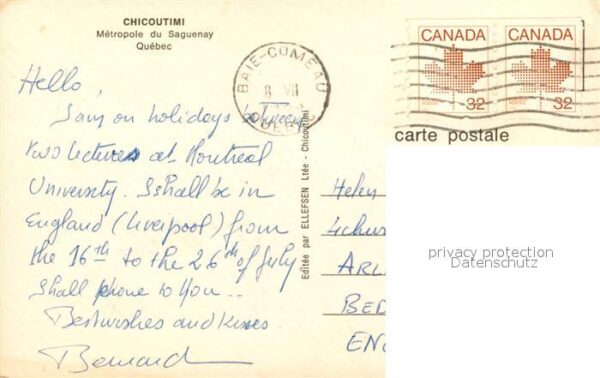 CHICOUTIMI
Métropole du Saguenay
Québec
Hello,
I am on holidays between
two lectures at Montreal
University. I shall be in
England (Liverpool) from
the 16th to the 26th of July
Shall phone to you ..
Best wishes and Kisses
Bernard
BAIE-COMEAU
8 VII
QUEBEC
Editée par ELLEFSEN Ltée - Chicoutimi
CANADA
32
CANADA
32
carte postale
Helen
ARL
BED
EN
privacy protection
Datenschutz